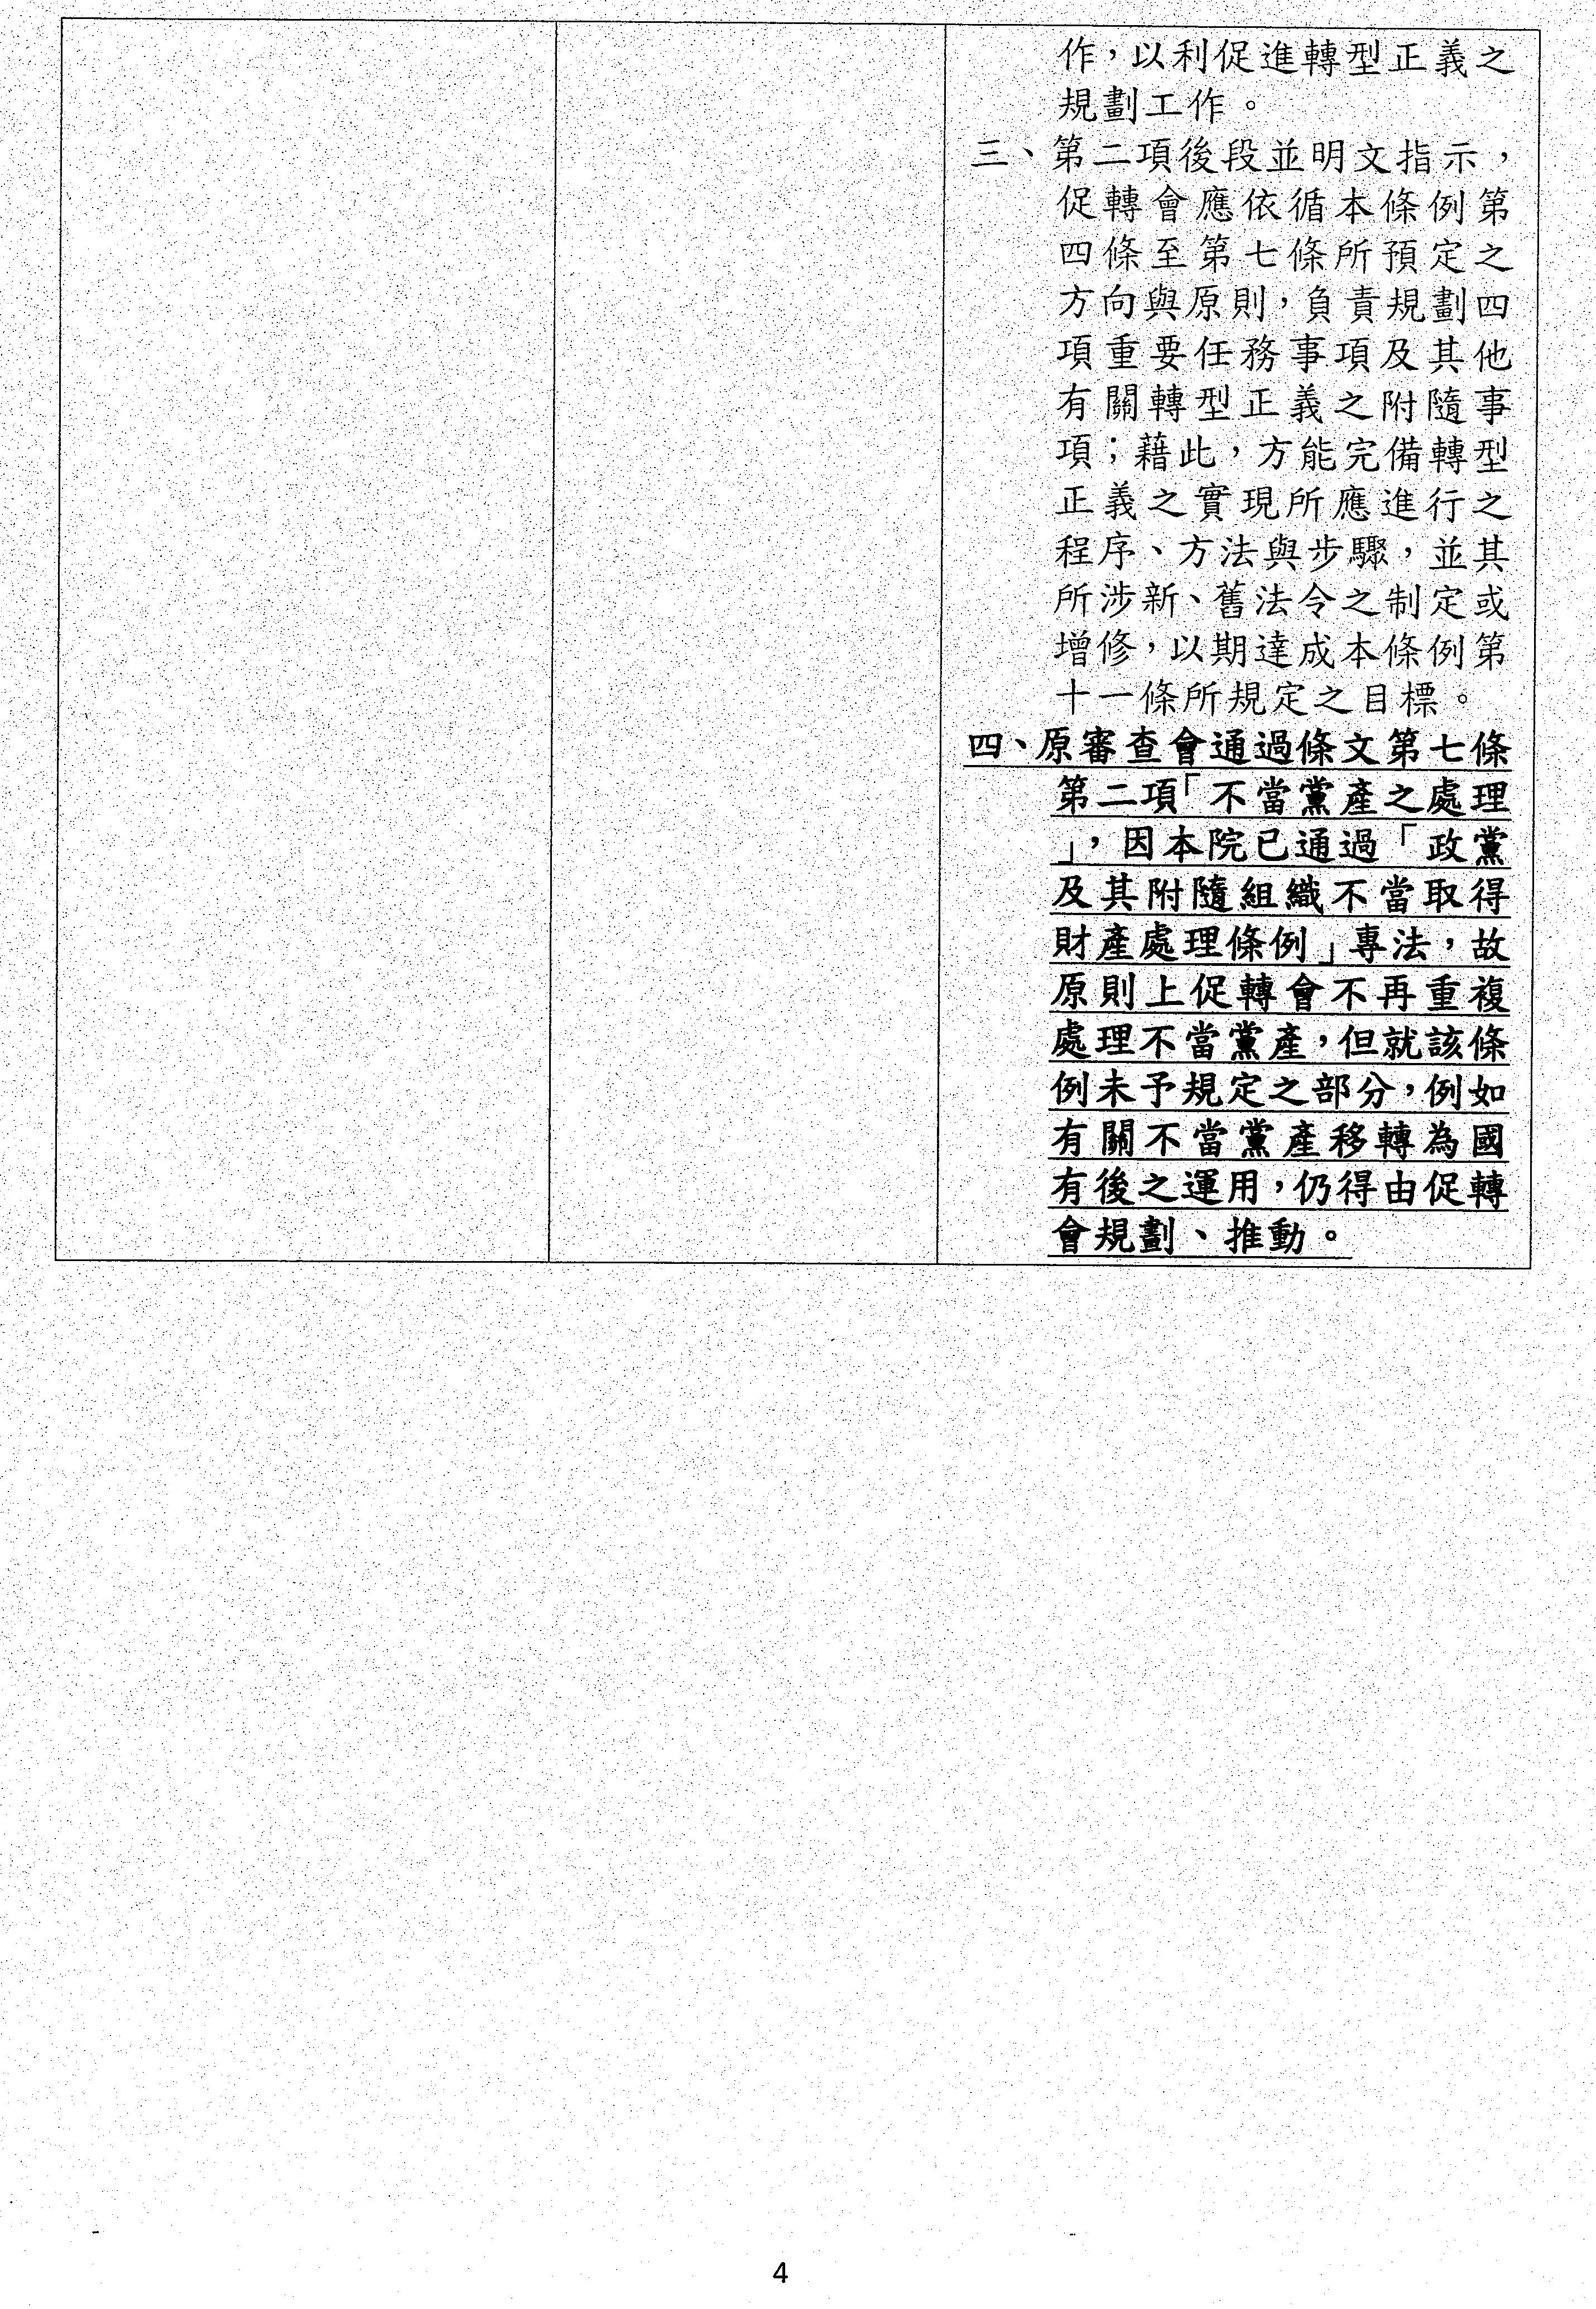 作，以利促進轉型正義之
規劃工作。
三、第二項後段並明文指示，
促轉會應依循本條例第
四條至第七條所預定之
方向與原則，負責規劃四
項重要任務事項及其他
有關轉型正義之附隨事
項；藉此，方能完備轉型
正義之實現所應進行之
程序、方法與步驟，並其
所涉新、舊法令之制定或
增修，以期達成本條例第
十一條所規定之目標。
四、原審查會通過條文第七條
第二項「不當黨產之處理
」，因本院已通過「政黨
及其附隨組織不當取得
財產處理條例」專法，故
原則上促轉會不再重複
處理不當黨產，但就該條
例未予規定之部分，例如
有關不當黨產移轉為國
有後之運用，仍得由促轉
會規劃、推動。
4